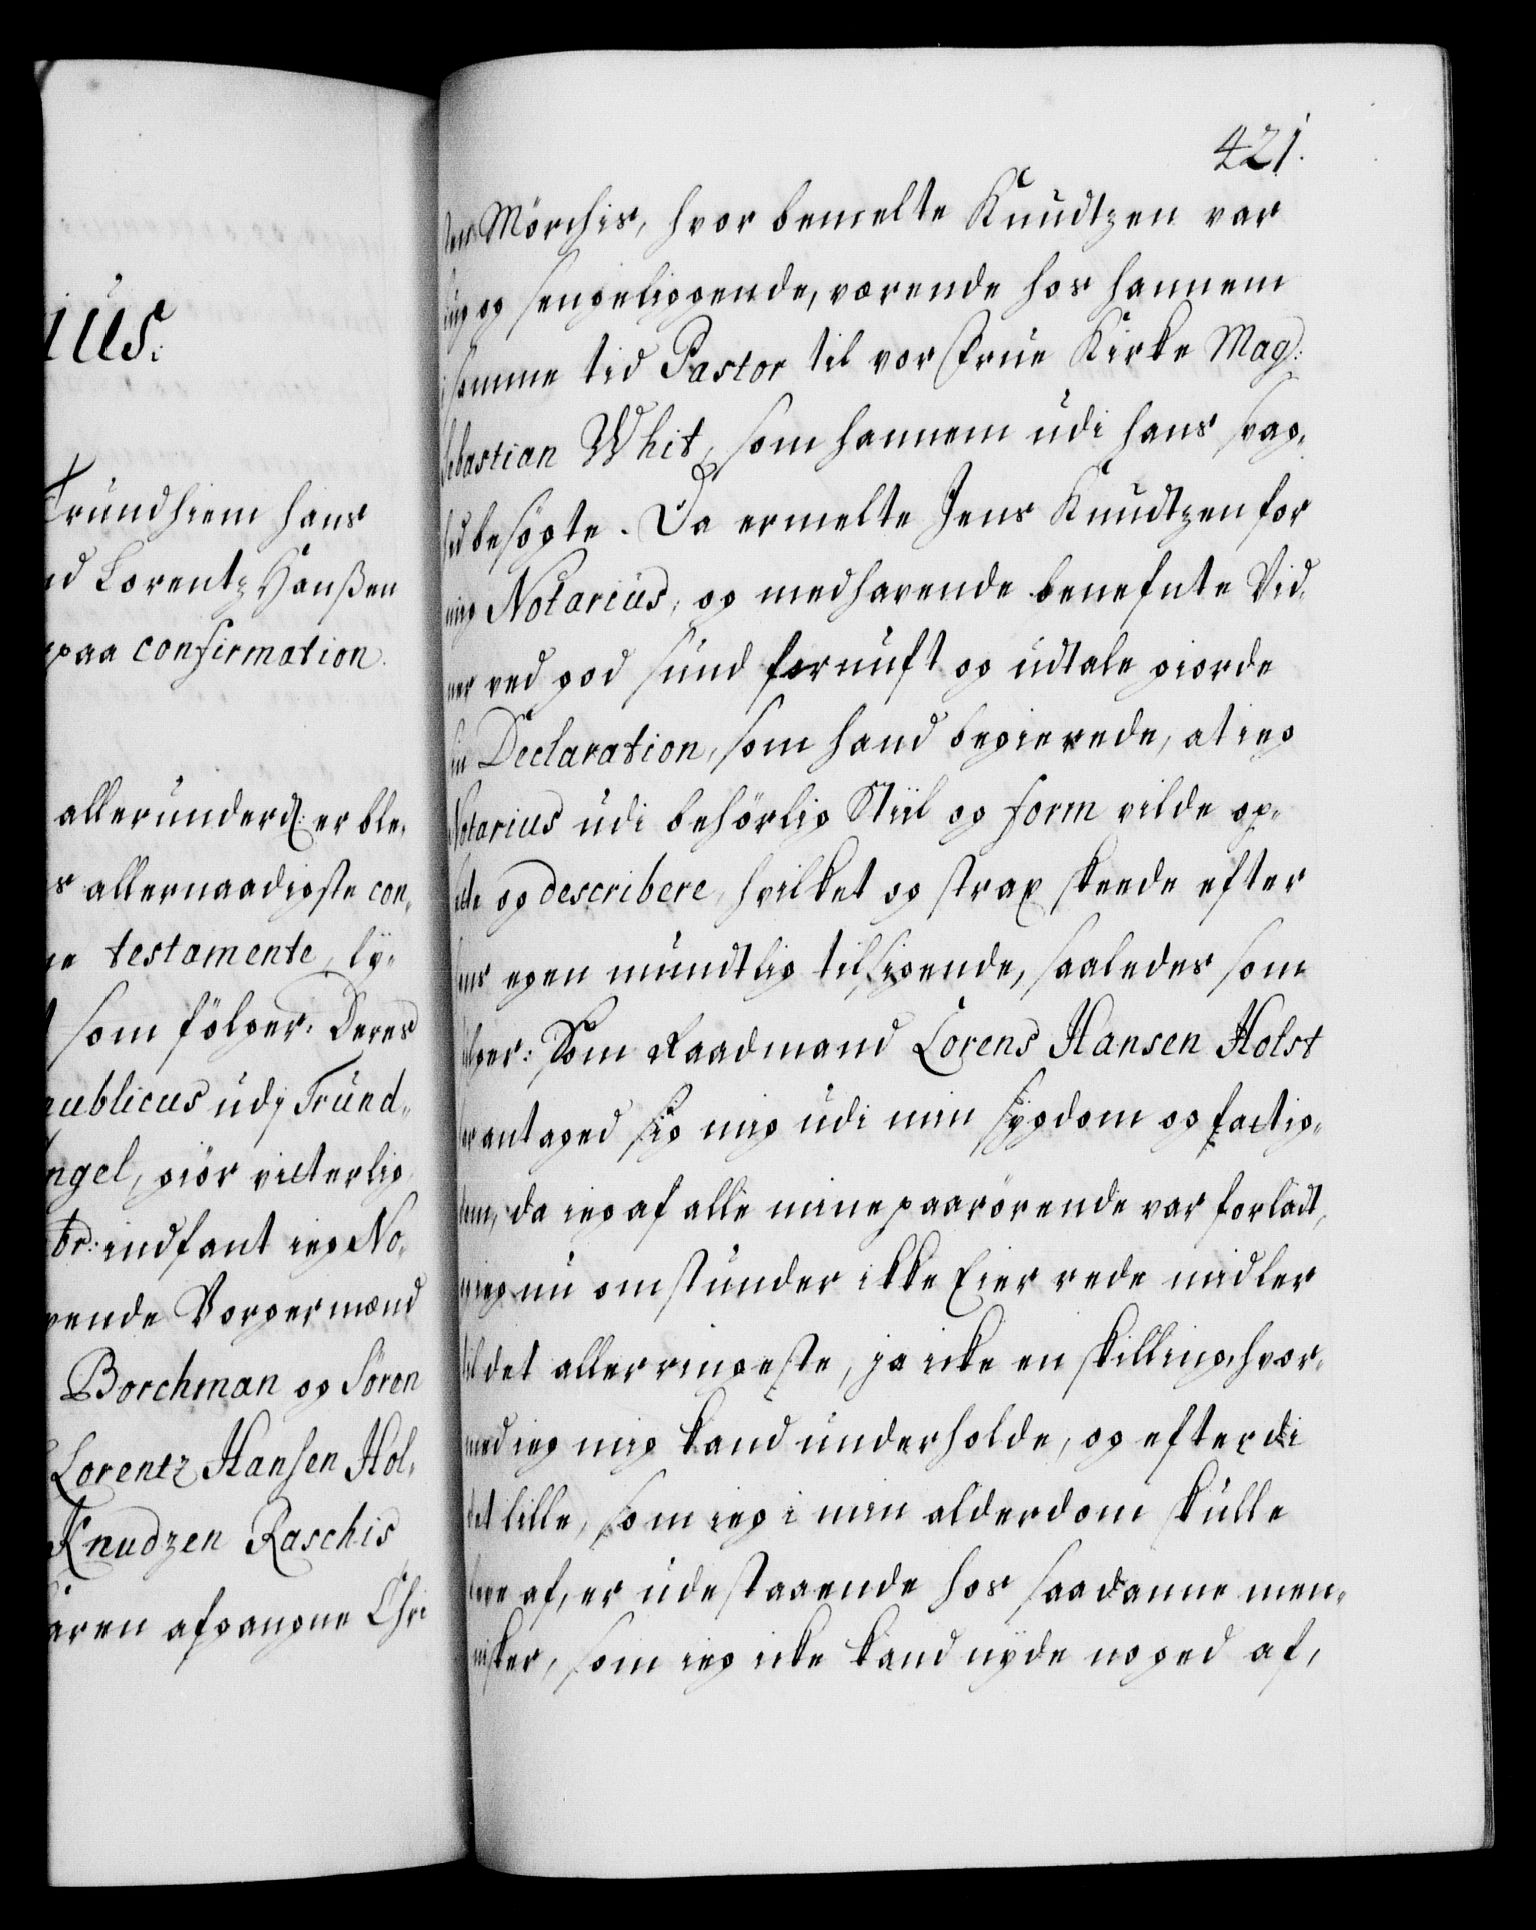 ius.
Trundhiem hans
Lorentz Hanßen
paa confirmation.
allerunderd: er ble,
allernaadigste con,
testamente, ly,
som fölger: Deres
publicus udj Trund,
ngel, giör vitterlig
indfant ieg No,
vende Borgermænd
Borchman og Sören
Lorentz Hansen Hol,
Knudzen Raschis
afgangne Chri
421.
Mörchis, hvor bemelte Knudtzen var
og sengeliggende, værende hos hannem
samme tid Pastor til vor Frue Kirke Mag:
Sebastian Whit, som hannem udi hans svag,
hed besögte. Da ermelte Jens Knudtzen for
mig Notarius, og medhavende benefnte Vid,
ner ved god sund fornuft og udtale giorde
sin Declaration, som hand begierede, at ieg
Notarius udi behörlig Stiil og form vilde op,
sette og describere, hvilket og strax skeede efter
hans egen mundtlig tilsigende, saaledes som
fölger: Som Raadmand Lorens Hansen Holst
har antaged sig mig udi min sygdom og fattig,
dom, da ieg af alle mine paarörende var forladt,
ieg nu omstunder ikke Eier rede midler
til det allerringeste, ja icke en skilling, hvor,
med ieg mig kand underholde, og efterdi
det lille, som ieg i min alderdom skulle
leve af, er udestaaende hos saadanne men,
nisker, som ieg icke kand nyde noged af,